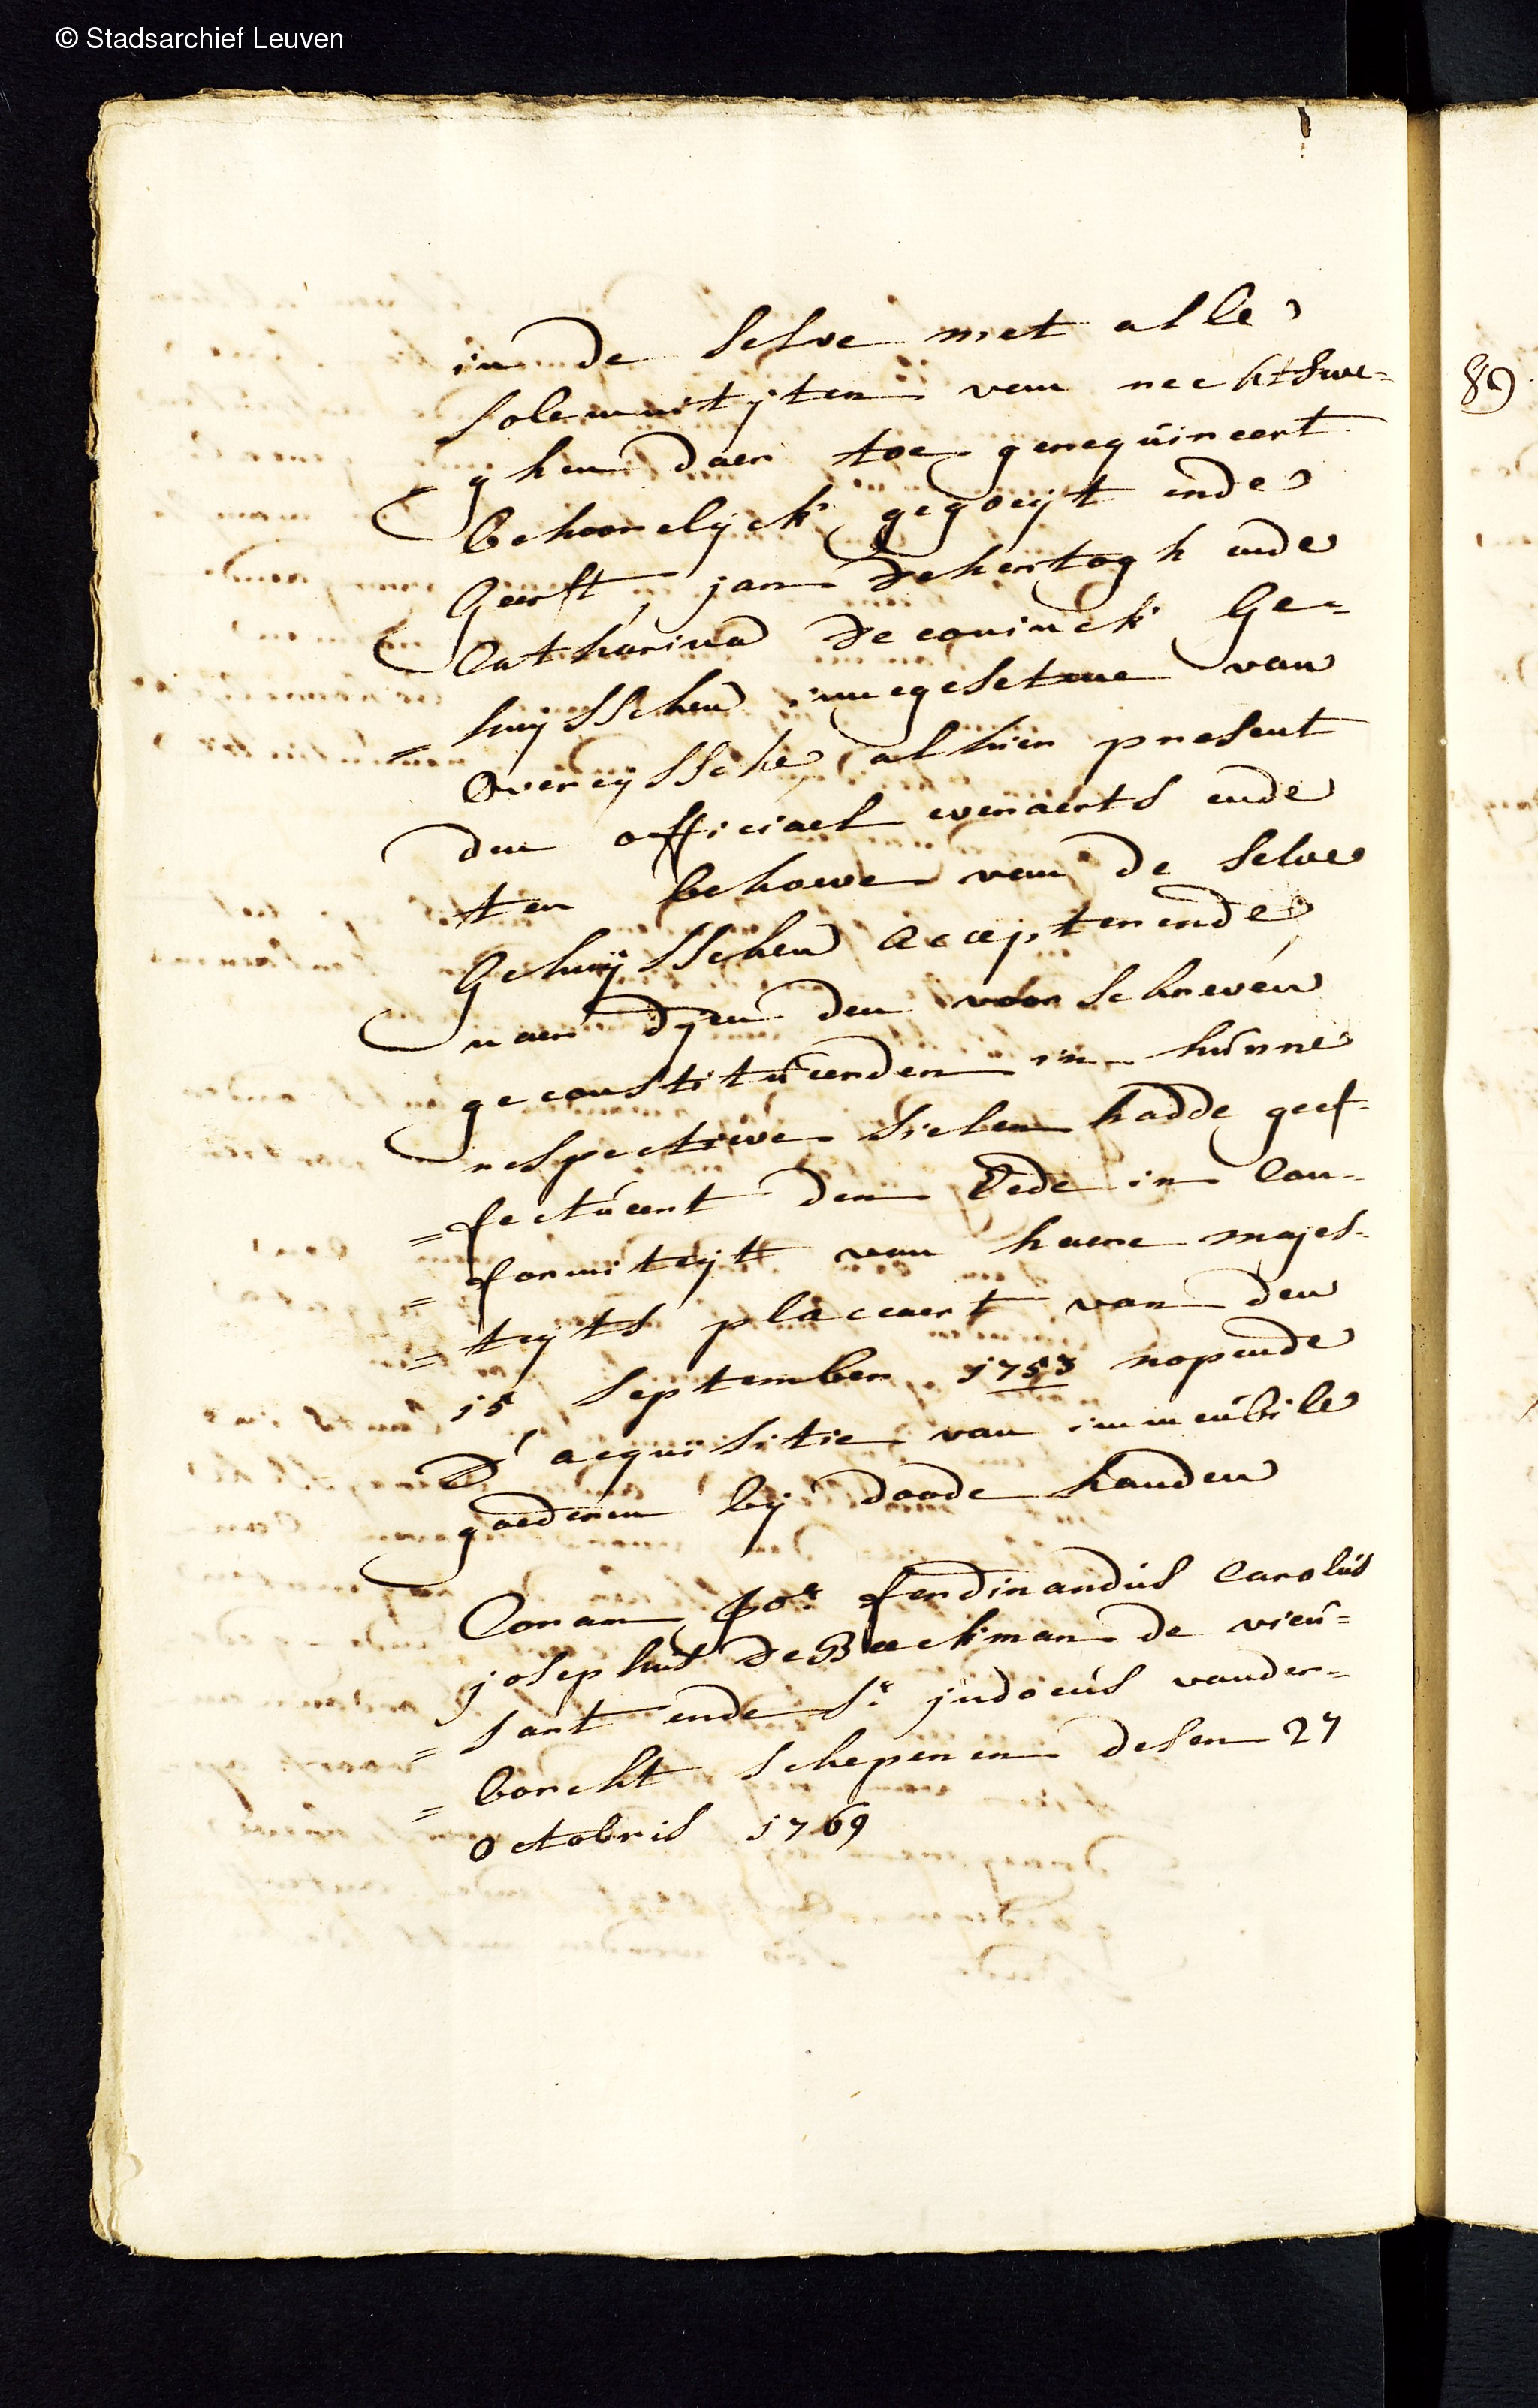 © Stadsarchief Leuven
in de selve met alle
solemnitijten van rechtswe=
ghen daer toe gerequireert
behoorelijck gegoeijt ende
Geerft, jan De hertogh ende
Catharina De coninck Ge=
= huijsschen innegesetene van
Overeyssche, alhier present
den officiael everaerts ende
ten behoeve van de selve
Gehuijsschen accepterende
naer dyen den voorschreven
geconstitueerden in hunne
respective sielen hadde geef-
= fectueert den Eede in Con-
= formiteijt van haere majes-
= teijts placcaert van den
15 september 1753 nopende
D'acquisitie van immeubile
goederen bij doode handen
Coram Jor ferdinandus Carolus
josephus De Baeckman de vieu=
= sart ende Sr judocus vander=
= borcht schepenen desen 27
octobris 1769
89